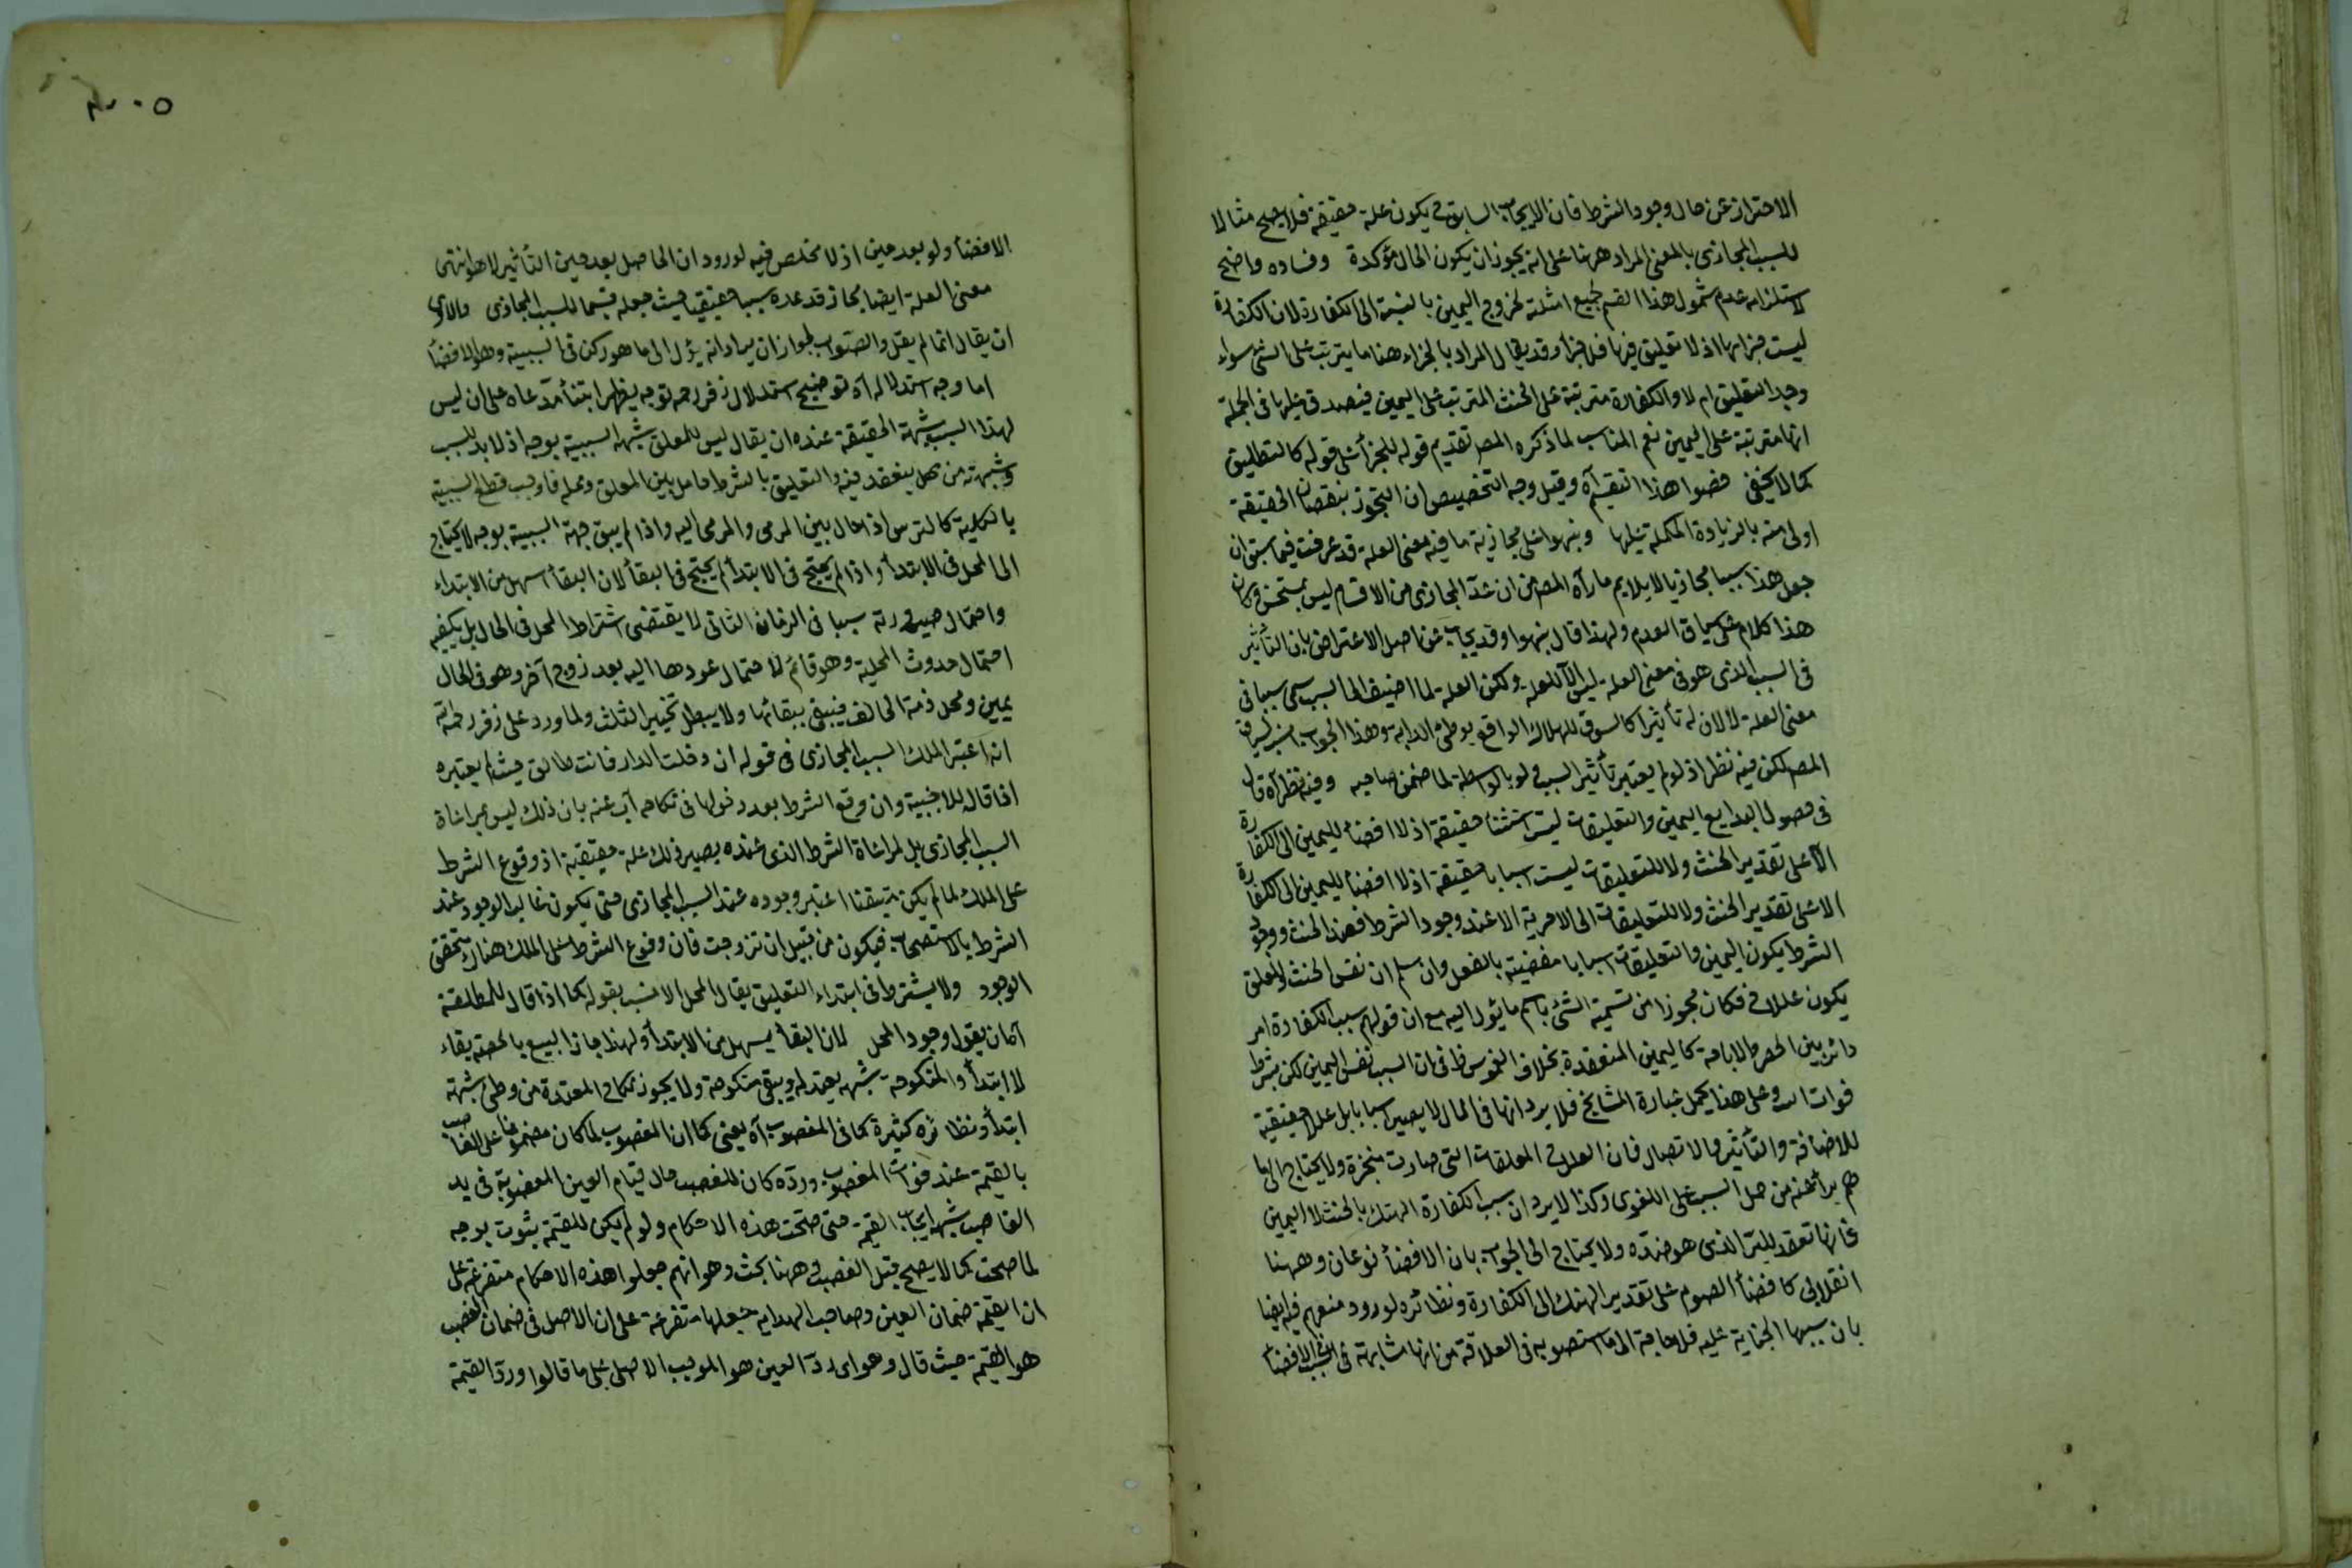 الاحتراز عن حال وجود الشرط فان الايجاب السابق ح يكون علة حقيقة فلا يصح مثالا
للسبب المجازى بالمعنى المراد ههنا على انه يجوز ان يكون الحال مؤكدة وفساده واضح
لاستلزامه عدم شمول هذا القسم لجميع امثلته لخروج اليمين بالنسبة الى الكفارة لان الكفارة
ليست جزائها اذ لا تعليق فيها فلا جزأ وقد يقال المراد بالجزاء هنا ما يترتب على الشئ سواء
وجد التعليق ام لا والكفارة مترتبة على الحنث المترتب على اليمين فيصدق عليها فى الجملة
انها مترتبة على اليمين نعم المناسب لما ذكره المص تقديم قوله للجزأ على قوله كالتطليق
كما لا يخفى خصوا هذا التقسيم آه وقيل وجه التخصيص ان التجوز بنقصان الحقيقة
اولى منه بالزيادة المكملة عليها ونبهوا على مجازية ما فيه معنى العلة قد عرفت فيما سبق ان
جعل هذا سببا مجازيا لا يلايم ما رآه المص من ان عد المجازى من الاقسام ليس بمستحسن وكان
هذا كلام على سياق العدم ولهذا قال نبهوا وقد يجاب عن اصل الاعتراض بان التأثير
فى السبب الذى هو فى معنى العلة ليس الا للعلة ولكن العلة لما اضيف الى السبب سمى سببا فى
معنى العلة لا لان له تأثيرا كالسوق للهلاك الواقع بوطئ الدابة وهذا الجواب
المص لكن فيه نظر اذ لو لم يعتبر تأثير السبب ولو بالواسطة لما ضمن صاحبه وفيه نظر آه قال
فى فصول البدايع اليمين والتعليقات ليست حقيقة اذ لا افضأ لليمين الى الكفارة
الا على تقدير الحنث ولا للتعليقات ليست اسبابا حقيقة اذ لا افضأ لليمين الى الكفارة
الا على تقدير الحنث ولا للتعليقات الى الاجزية الا عند وجود الشرط فعند الحنث ووجود
الشرط يكون اليمين والتعليقات اسبابا مفضية بالفعل وان سلم ان نفس الحنث والمعلق
يكون عللا ح فكان مجوزا من تسمية الشئ باسم ما يؤل اليه مع ان قولهم سبب الكفارة امر
دائر بين الحظر والاباحة كاليمين المنعقدة بخلاف الغموس ظ فى ان السبب نفس اليمين لكن بشرط
فوات البر وعلى هذا يحمل عبارة المشايخ فلا يرد انها فى المال لا يصير اسبابا بل عللا حقيقية
للاضافة والتأثير والاتصال فان العلل ح المعلقات التى صارت منجزة ولا يحتاج الى ما
هم برأ عنه من حمل السبب على اللغوى وكذا لا يرد ان سبب الكفارة الهتك بالحنث لا اليمين
فانها تعقد للبر الذى هو ضده ولا يحتاج الى الجواب بان الافضأ نوعان وههنا
انقلابى كافضأ الصوم على تقدير الهتك الى الكفارة ونظائره لورود منعهم فيه ايضا
بان سببها الجناية عليه فلا حاجة الى ما استصوبه فى العلاقة من انها مشابهة فى الافضأ
٥
الافضأ ولو بعد حين اذ لا مخلص فيه لورود ان الحاصل بعد حين التأثير لا هو انتهى
معنى العلة ايضا مجاز قد عده سببا حقيقيا حيث جعله قسيما للسبب المجازى والاولى
ان يقال انما لم يقل والصواب لجواز ان يراد انه يؤل الى ما هو ركن فى السببية وهو الافضأ
اما وجه استدلاله آه توضيح استدلال زفر رحمه توجه يظهر ابتنأ مدعاه على ان ليس
لهذا السبب شبهة الحقيقة عنده ان يقال ليس للمعلق شبهة السببية بوجه اذ لا بد للسبب
وشبهته من محل ينعقد فيه والتعليق بالشرط حامل بين المعلق ومحله فاوجب قطع السببية
بالكلية كالترس اذا حال بين المرمى والمرمى اليه واذا لم يبق جهة السببية بوجه لا يحتاج
الى المحل فى الابتدأ واذا لم يحتج فى الابتدأ لم يحتج فى البقأ لان البقأ اسهل من الابتداء
واحتمال صيرورته سببا فى الزمان الثانى لا يقتضى اشتراط المحل فى الحال بل يكفيه
احتمال حدوث المحلية وهو قائم لاحتمال عودها اليه بعد زوج آخر وهو فى الحال
يمين ومحله ذمة الحالف فيبقى ببقائها ولا يبطل تنجيز الثلث ولما ورد على زفر رحمه
انه اعتبر الملك السبب المجازى فى قوله ان دخلت الدار فانت طالق حيث لم يعتبره
اذا قال للاجنبية وان وقع الشرط بعد دخولها فى نكاحه اجاب عنه بان ذلك ليس لمراعاة
السبب المجازى بل لمراعاة الشرط الذى عنده يصير ذلك علة حقيقية اذ وقوع الشرط
على الملك لما لم يكن متيقنا اعتبر وجوده عند السبب المجازى حتى يكون غالب الوجود عند
الشرط بالاستصحاب فيكون من قبيل ان تزوجت فان وقوع الشرط على الملك هناك متحقق
الوجود ولا يشترط فى ابتداء التعليق يقال المحل الانسب بقوله كما اذا قال للمطلقة
آه ان يقول وجود المحل لان البقأ يسهل من الابتدأ ولهذا جاز البيع بالحصة بقاء
لا ابتدأ والمنكوحة بشبهة يعتد له ويبقى منكوحة ولا يجوز نكاح المعتدة من وطئ شبهة
ابتدأ ونظائره كثيرة كما فى المغصوب آه يعنى كما ان المغصوب لما كان مضمونا على الغاصب
بالقيمة عند فوات المغصوب ورده كان للغصب حال قيام العين المغصوبة فى يد
الغاصب شبهة ايجاب القيمة حتى صحت هذه الاحكام ولو لم يكن للقيمة ثبوت بوجه
لما صحت كما لا يصح قبل الغصب وههنا بحث وهو انهم جعلوا هذه الاحكام متفرعة على
ان القيمة ضمان العين وصاحب الهداية جعلها متفرعة على ان الاصل فى ضمان الغصب
هو القيمة حيث قال وعوا اى رد العين هو الموجب الاصلى على ما قالوا ورد القيمة